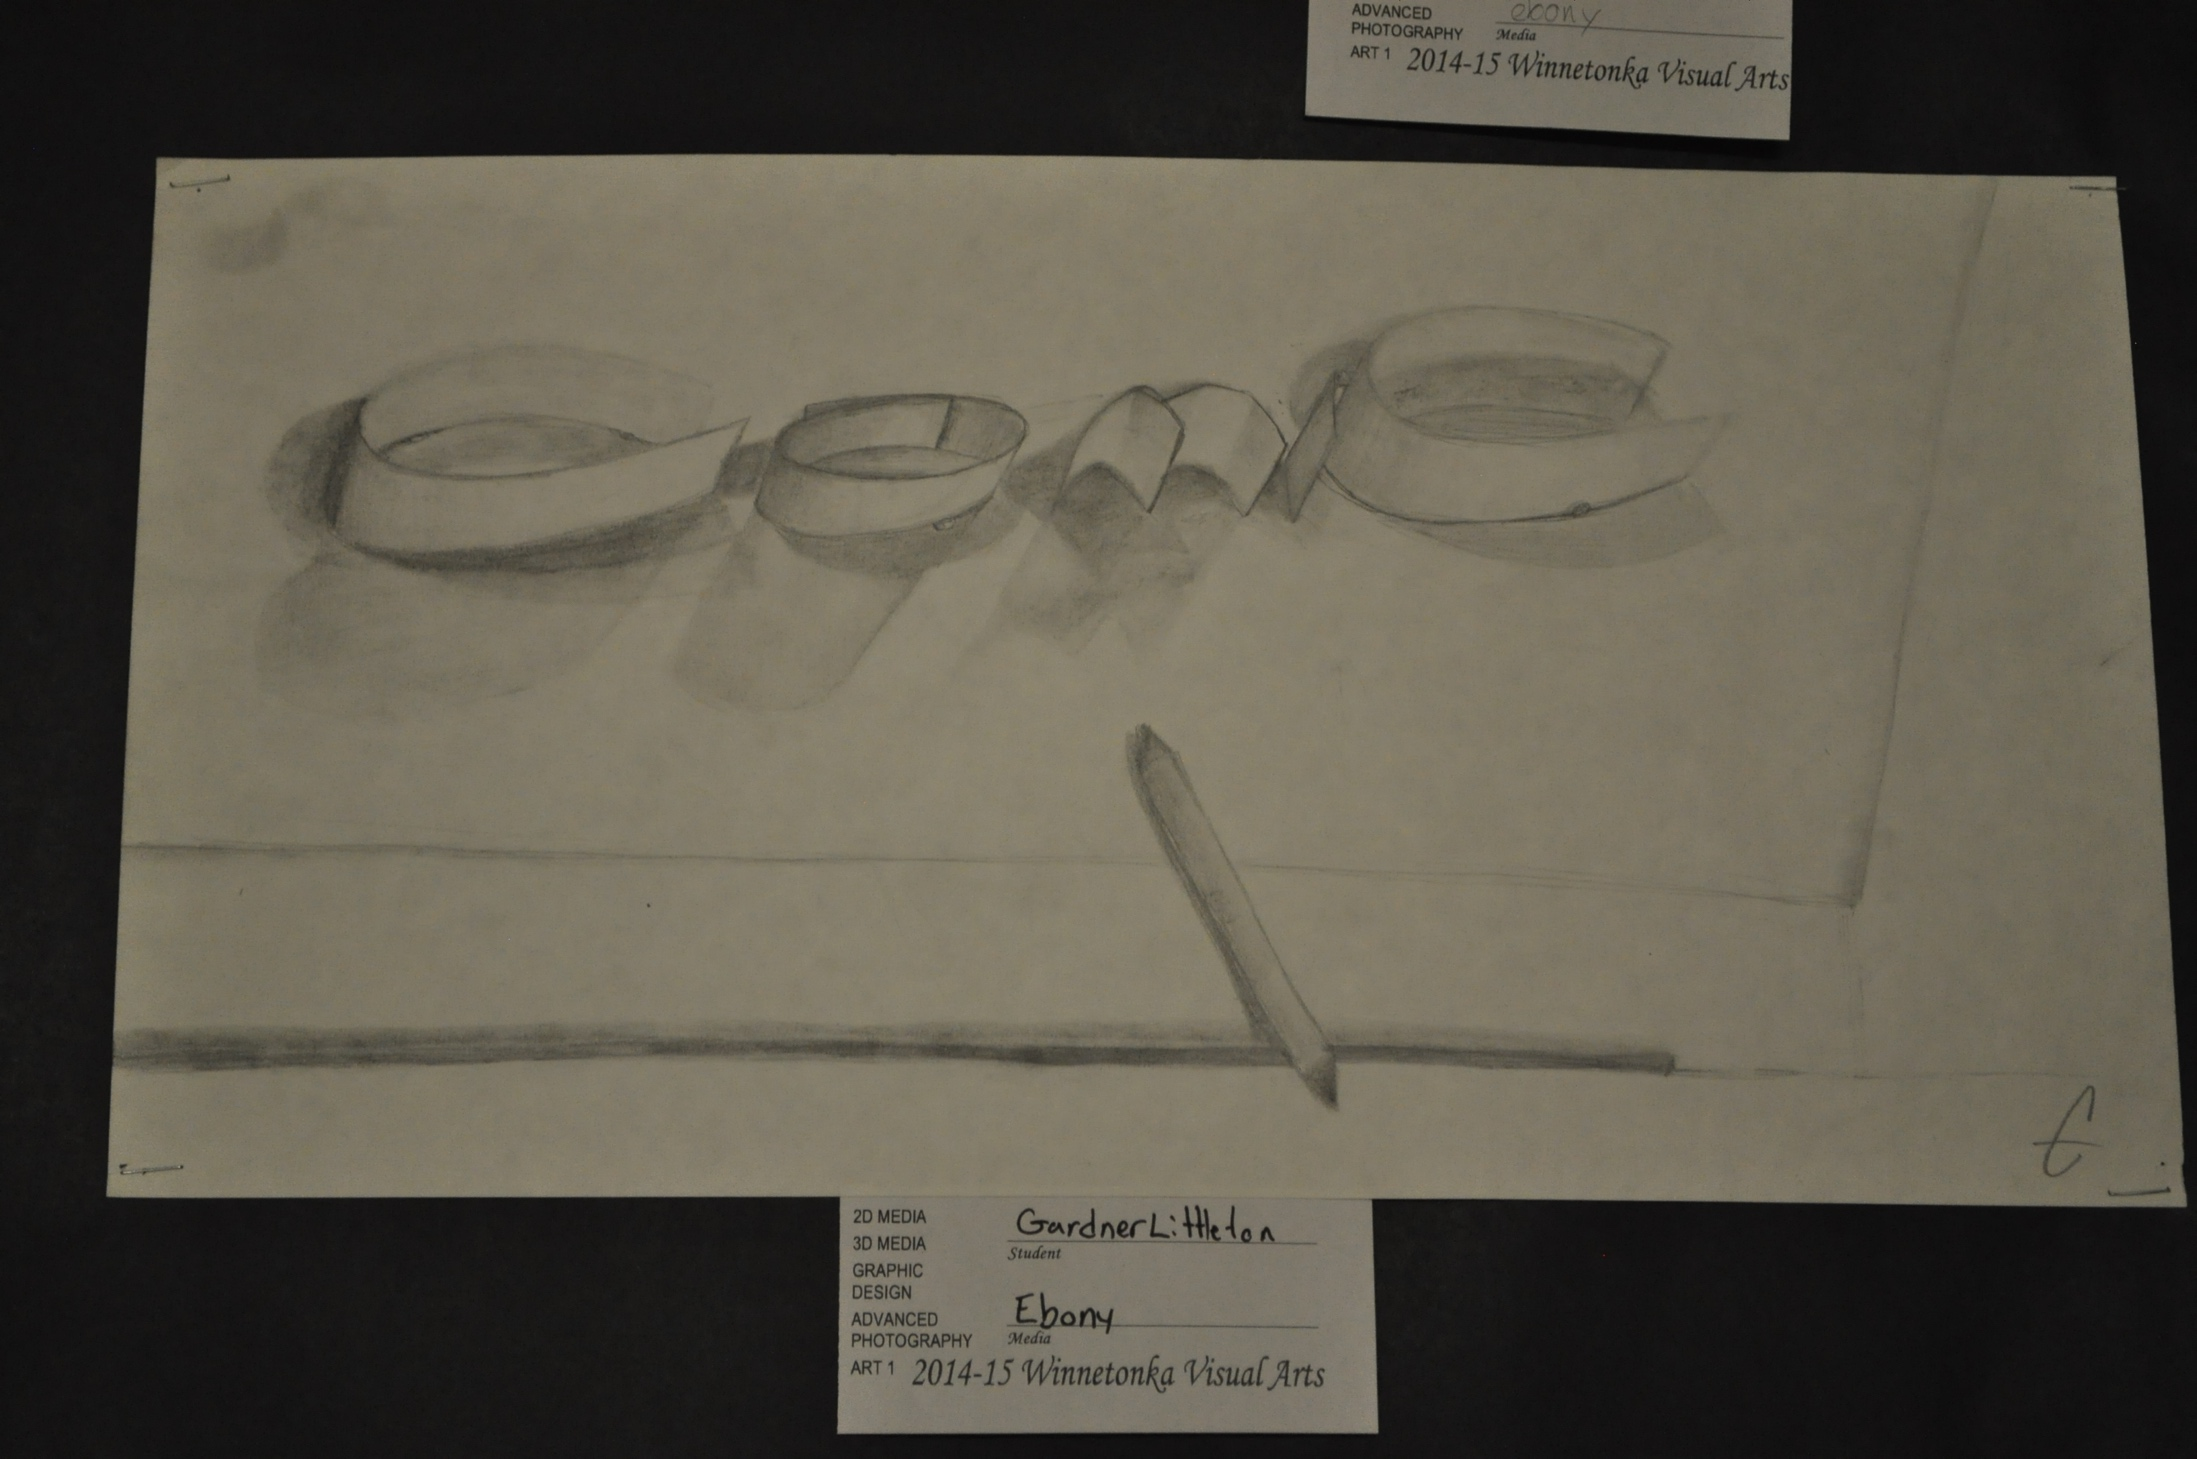 ADVANCED
PHOTOGRAPHY
ebony
Media
ART 1 2014-15 Winnetonka Visual Arts
2D MEDIA
3D MEDIA
GRAPHIC
DESIGN
ADVANCED
PHOTOGRAPHY
ART 1
Gardner Littleton
Student
Ebony
Media
2014-15 Winnetonka Visual Arts